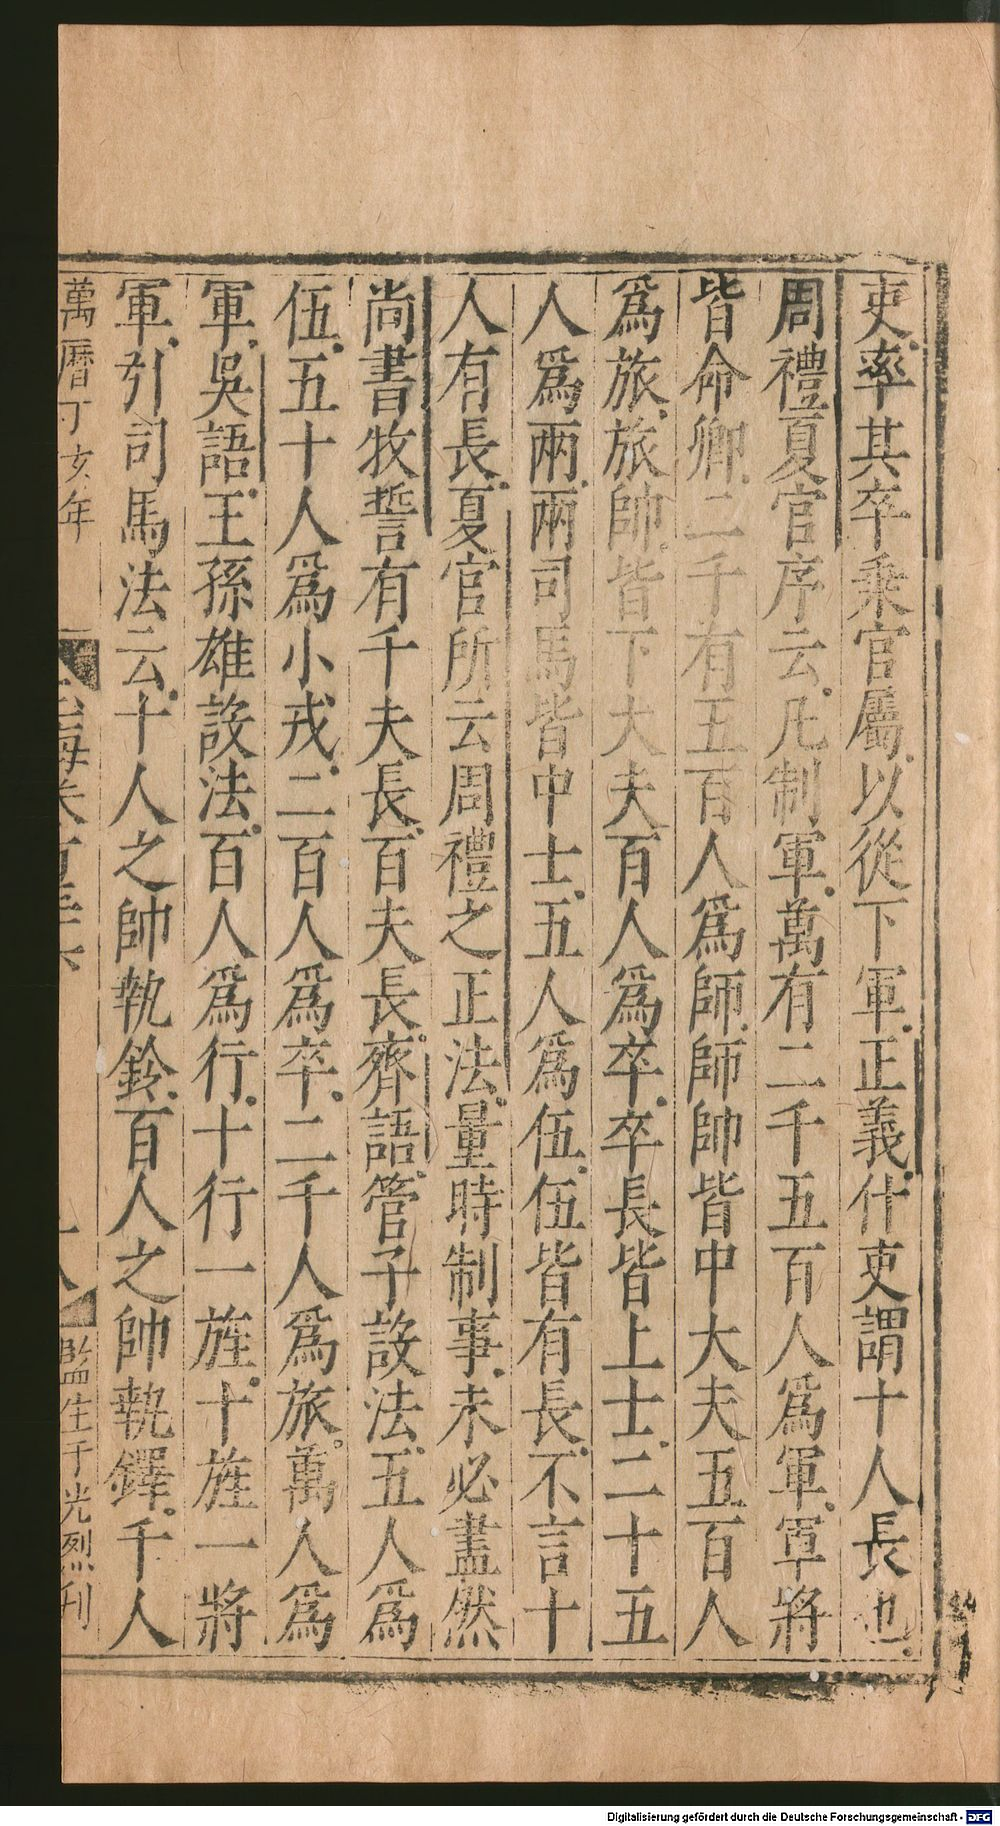 吏率其卒乘官屬以從下軍正義什吏謂十人長也
周禮夏官序云凡制軍萬有二千五百人爲軍軍將
皆命卿二千有五百人爲師師帥皆中大夫五百人
爲旅旅帥皆下大夫百人爲卒卒長皆上士二十五
人爲兩兩司馬皆中士五人爲伍伍皆有長不言十
人有長夏官所云周禮之正法量時制事未必盡然
尚書牧誓有千夫長百夫長齊語管子設法五人爲
伍五十人爲小戎二百人爲卒二千人爲旅萬人爲
軍吳語王孫雄設法百人爲行十行一旌十旌一將
軍引司馬法云十人之帥執鈴百人之帥執鐸千人
萬曆丁亥年
玉海卷百三六
十八
監生于光烈刊
Digitalisierung gefördert durch die Deutsche Forschungsgemeinschaft - DFG